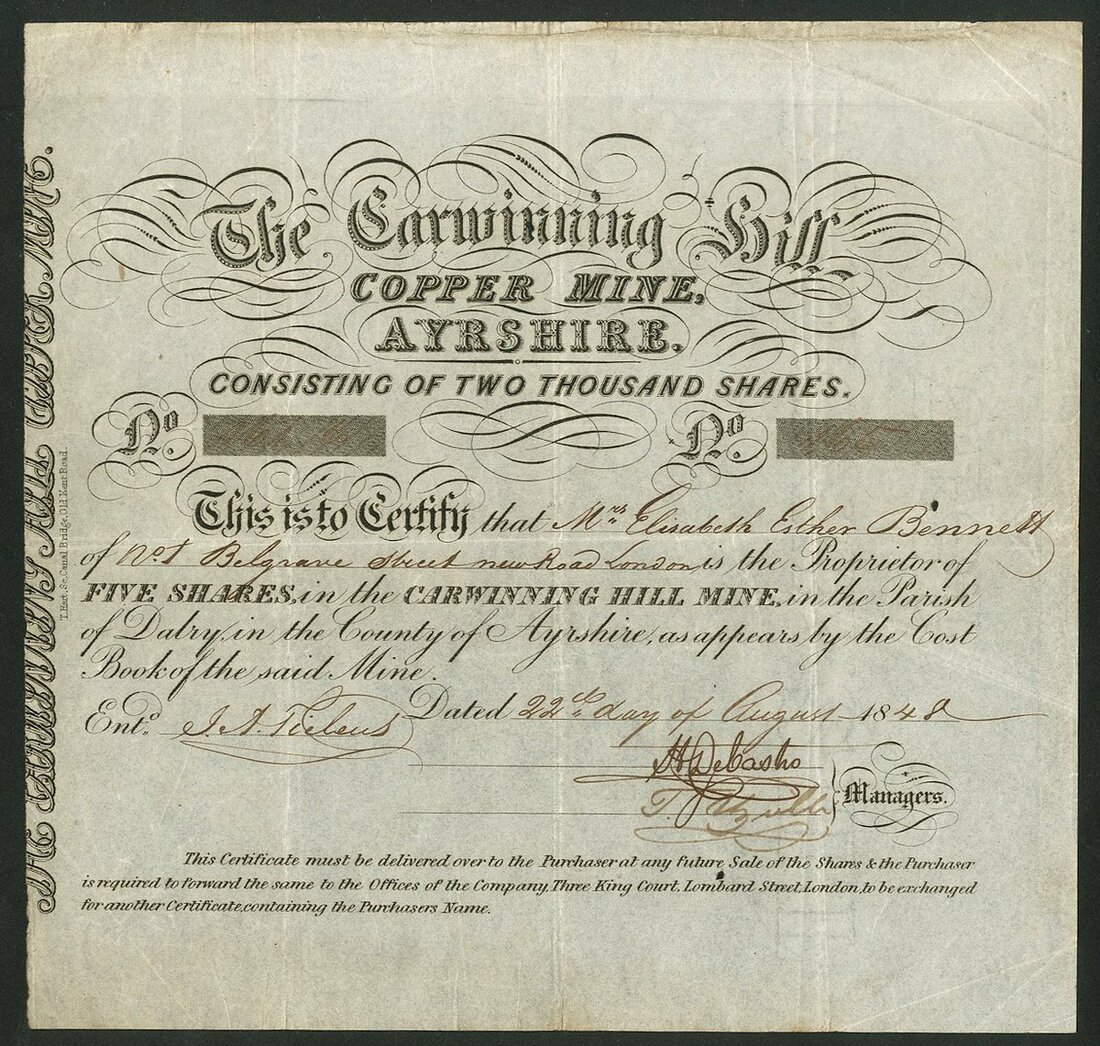 The Carwinning Hill
COPPER MINE,
AYRSHIRE.
CONSISTING OF TWO THOUSAND SHARES.
No No
This is to Certify that Mrs Elisabeth Esther Bennett
of No Belgrave Street new Road London is the Proprietor of
FIVE SHARES, in the CARWINNING HILL MINE, in the Parish
of Dalry, in the County of Ayrshire, as appears by the Cost
Book of the said Mine.
Dated 22nd day of August 1848
Entd. J.A.
Managers.
This Certificate must be delivered over to the Purchaser at any future Sale of the Shares & the Purchaser
is required to forward the same to the Offices of the Company, Three King Court, Lombard Street, London, to be exchanged
for another Certificate, containing the Purchasers Name.
T. Hart, Sc. Canal Bridge, Old Kent Road.